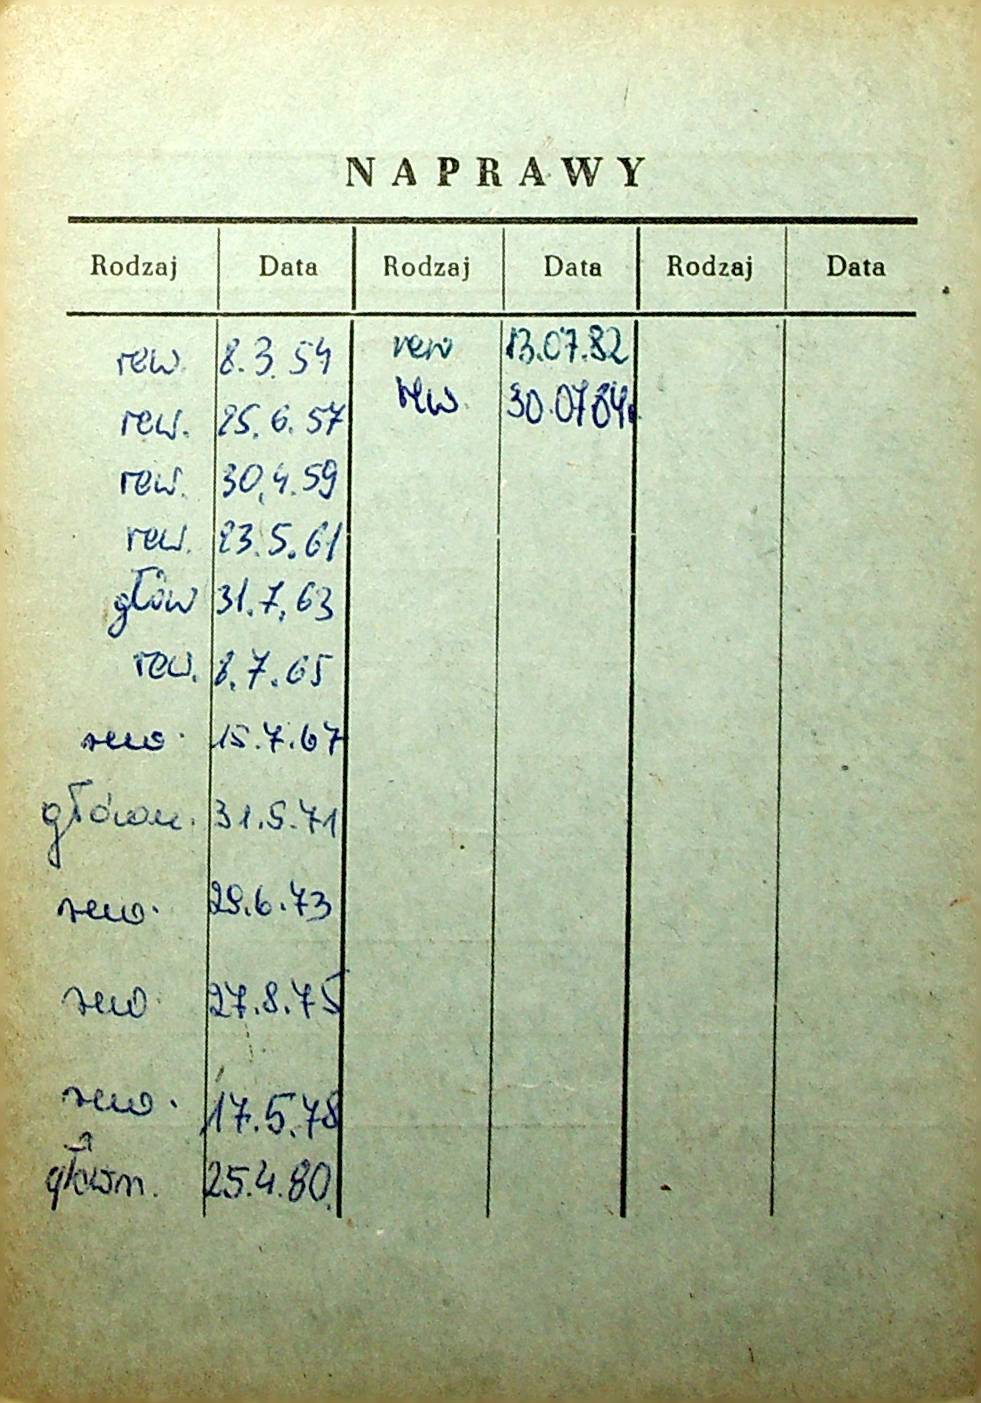 NAPRAWY
Rodzaj Data Rodzaj Data Rodzaj Data
rew. 8.3.54 rew 13.07.82
rew. 25.6.57 rew. 30.07 84r
rew. 30.4.59
rew. 23.5.61
głów 31.7.63
rew. 8.7.65
rew. 15.7.67
główn. 31.5.71
rew. 29.6.73
rew. 27.8.75
rew. 17.5.78
główn. 25.4.80